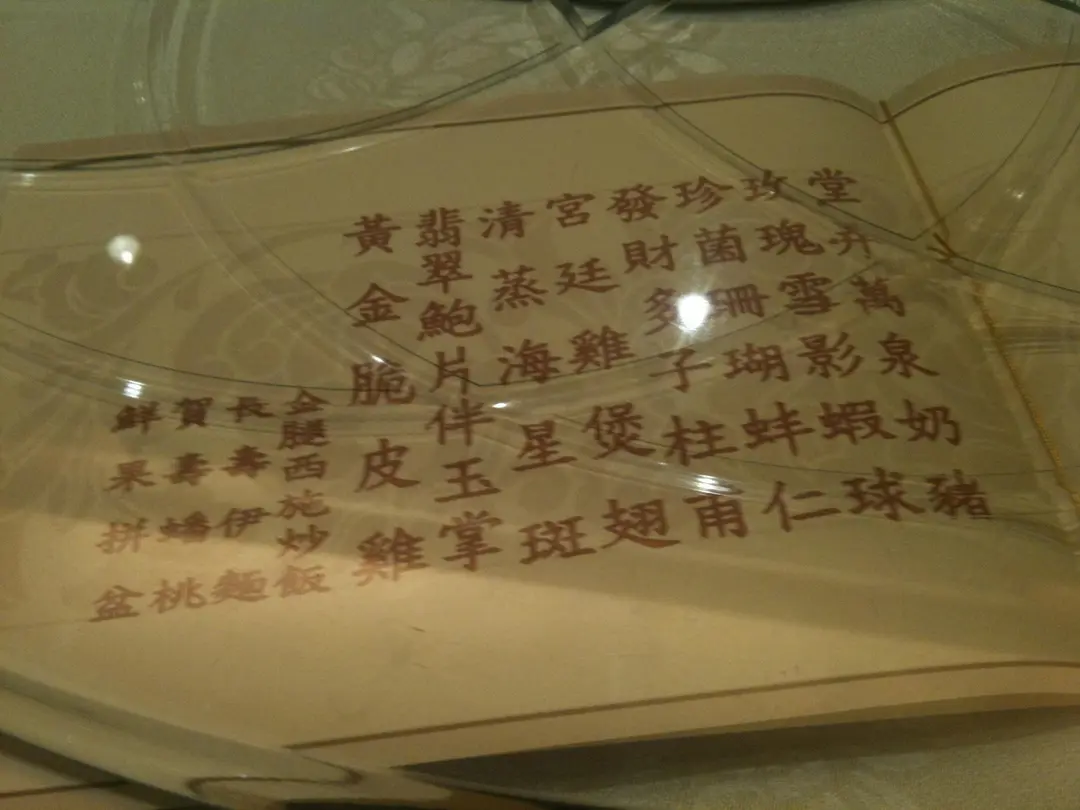 堂萬泉奶豬
玫瑰雪影蝦球
珍菌珊瑚蚌仁
發財多子柱甫
宮廷雞煲翅
清蒸海星斑
翡翠鮑片伴玉掌
黃金脆皮雞
金腿西施炒飯
長壽伊麵
賀壽蟠桃
鮮果拼盆